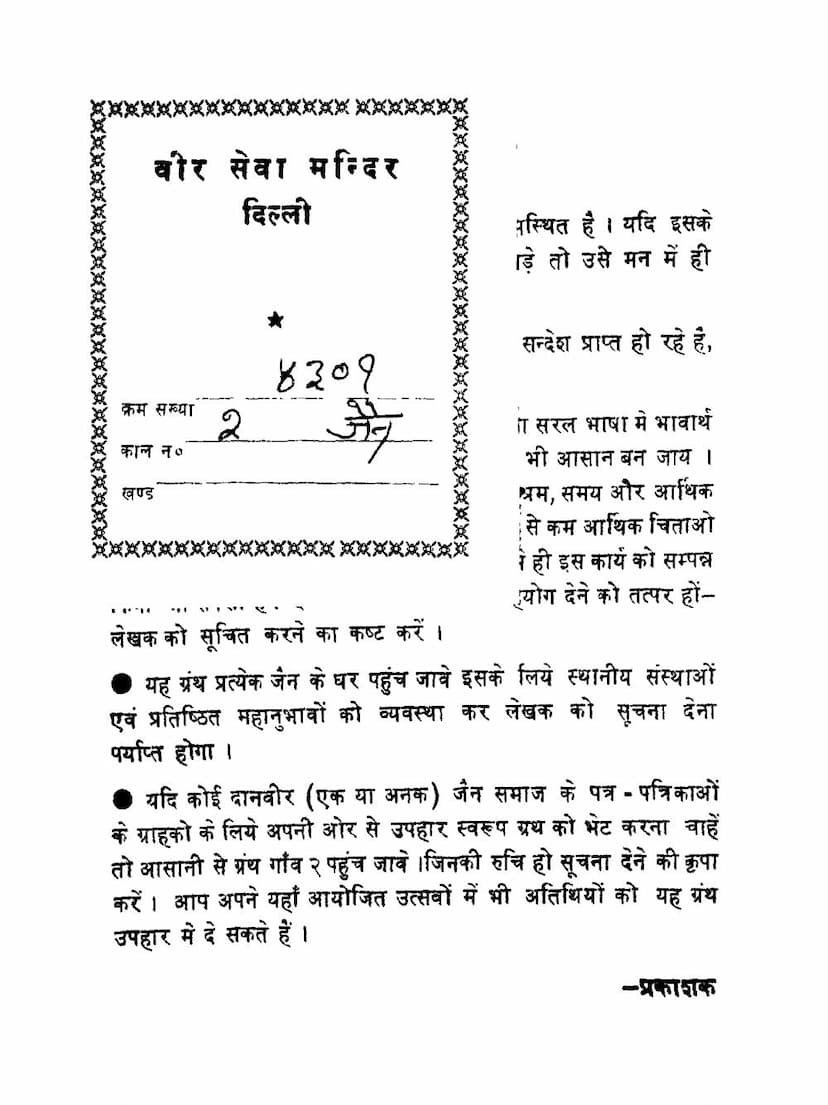 वीर सेवा मन्दिर
दिल्ली
४३०१
क्रम सख्या
२ जैन
काल न०
खण्ड
स्थित है । यदि इसके
तो उसे मन में ही
सन्देश प्राप्त हो रहे है,
सरल भाषा मे भावार्थ
भी आसान बन जाय ।
श्रम, समय और आर्थिक
से कम आर्थिक चिताओ
ही इस कार्य को सम्पन्न
योग देने को तत्पर हों—
लेखक को सूचित करने का कष्ट करें ।
● यह ग्रंथ प्रत्येक जैन के घर पहुंच जावे इसके लिये स्थानीय संस्थाओं
एवं प्रतिष्ठित महानुभावों को व्यवस्था कर लेखक को सूचना देना
पर्याप्त होगा ।
● यदि कोई दानवीर (एक या अनक) जैन समाज के पत्र - पत्रिकाओं
के ग्राहको के लिये अपनी ओर से उपहार स्वरूप ग्रथ को भेट करना चाहें
तो आसानी से ग्रंथ गाँव २ पहुंच जावे ।जिनकी रुचि हो सूचना देने की कृपा
करें । आप अपने यहाँ आयोजित उत्सवों में भी अतिथियों को यह ग्रंथ
उपहार मे दे सकते हैं ।
—प्रकाशक